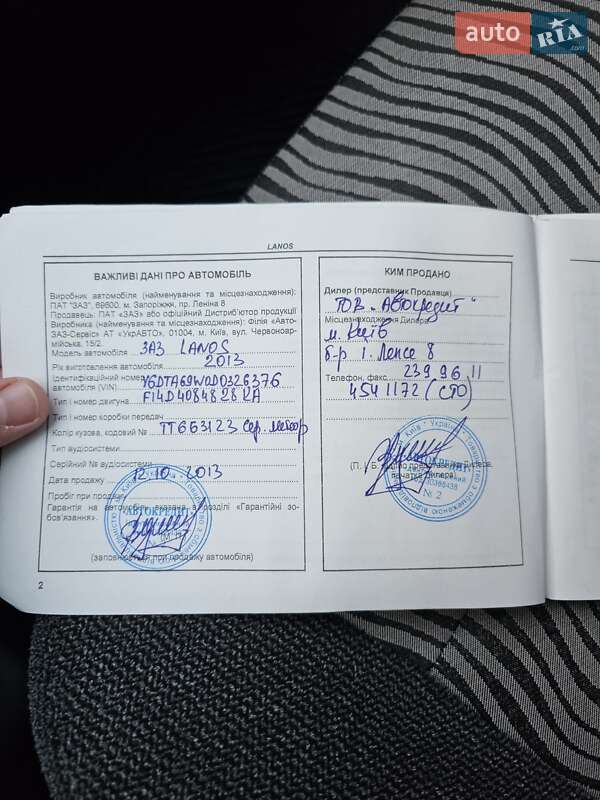 auto RIA.com
LANOS
ВАЖЛИВІ ДАНІ ПРО АВТОМОБІЛЬ
Виробник автомобіля (найменування та місцезнаходження):
ПАТ "ЗАЗ", 69600, м. Запоріжжя, пр. Леніна 8
Продавець: ПАТ «ЗАЗ» або офіційний Дистриб'ютор продукції
Виробника (найменування та місцезнаходження): Філія «Авто-
ЗАЗ-Сервіс» АТ «УкрАВТО», 01004, м. Київ, вул. Червоноар-
мійська, 15/2.
Модель автомобіля ЗАЗ LANOS
Рік виготовлення автомобіля 2013
Ідентифікаційний номер
автомобіля (VIN) Y6DTA69W0D0326376
Тип і номер двигуна F14D4084828KA
Тип і номер коробки передач
Колір кузова, кодовий № TT663123 сер.
Тип аудіосистеми
Серійний № аудіосистеми
Дата продажу 12.10.2013
Пробіг при продажу
Гарантія на автомобіль вказана в розділі «Гарантійні зо-
бов'язання».
АВТОКРЕДИТ
(заповнюється при продажу автомобіля)
2
КИМ ПРОДАНО
Дилер (представник Продавця)
ТОВ „Автокредит"
Місцезнаходження Дилера
м. Київ
б-р І. Лепсе 8
239 96 11
Телефон, факс
454 1172 (СТО)
АВТОКРЕДИТ
печатка Дилера)
№ 2